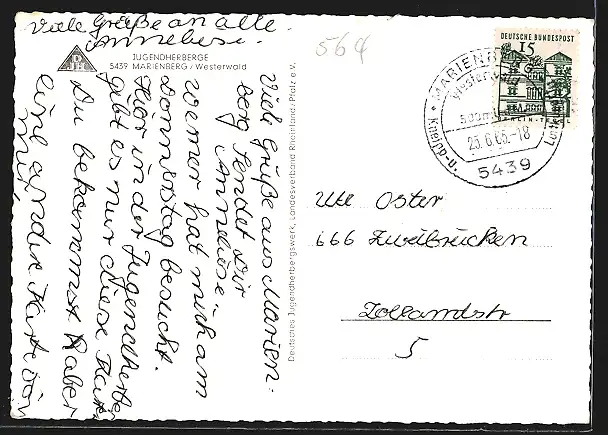 Viele Grüße an alle.
Anneliese.
JUGENDHERBERGE
5439 MARIENBERG / Westerwald
DJH
Viele Grüße aus Marien-
berg sendet Dir
Anneliese.
Werner hat mich am
Donnerstag besucht.
Hier in der Jugendherber
gibt es nur diese Karte
Du bekommst aber
eine andere Karte von
mir,
Deutsches Jugendherbergswerk, Landesverband Rheinland/Pfalz e.V.
564
DEUTSCHE BUNDESPOST
15
MARIENBERG
Westerwald
500m
Kneipp-u.
Luftkurort
5439
Ute Oster
666 Zweibrücken
5